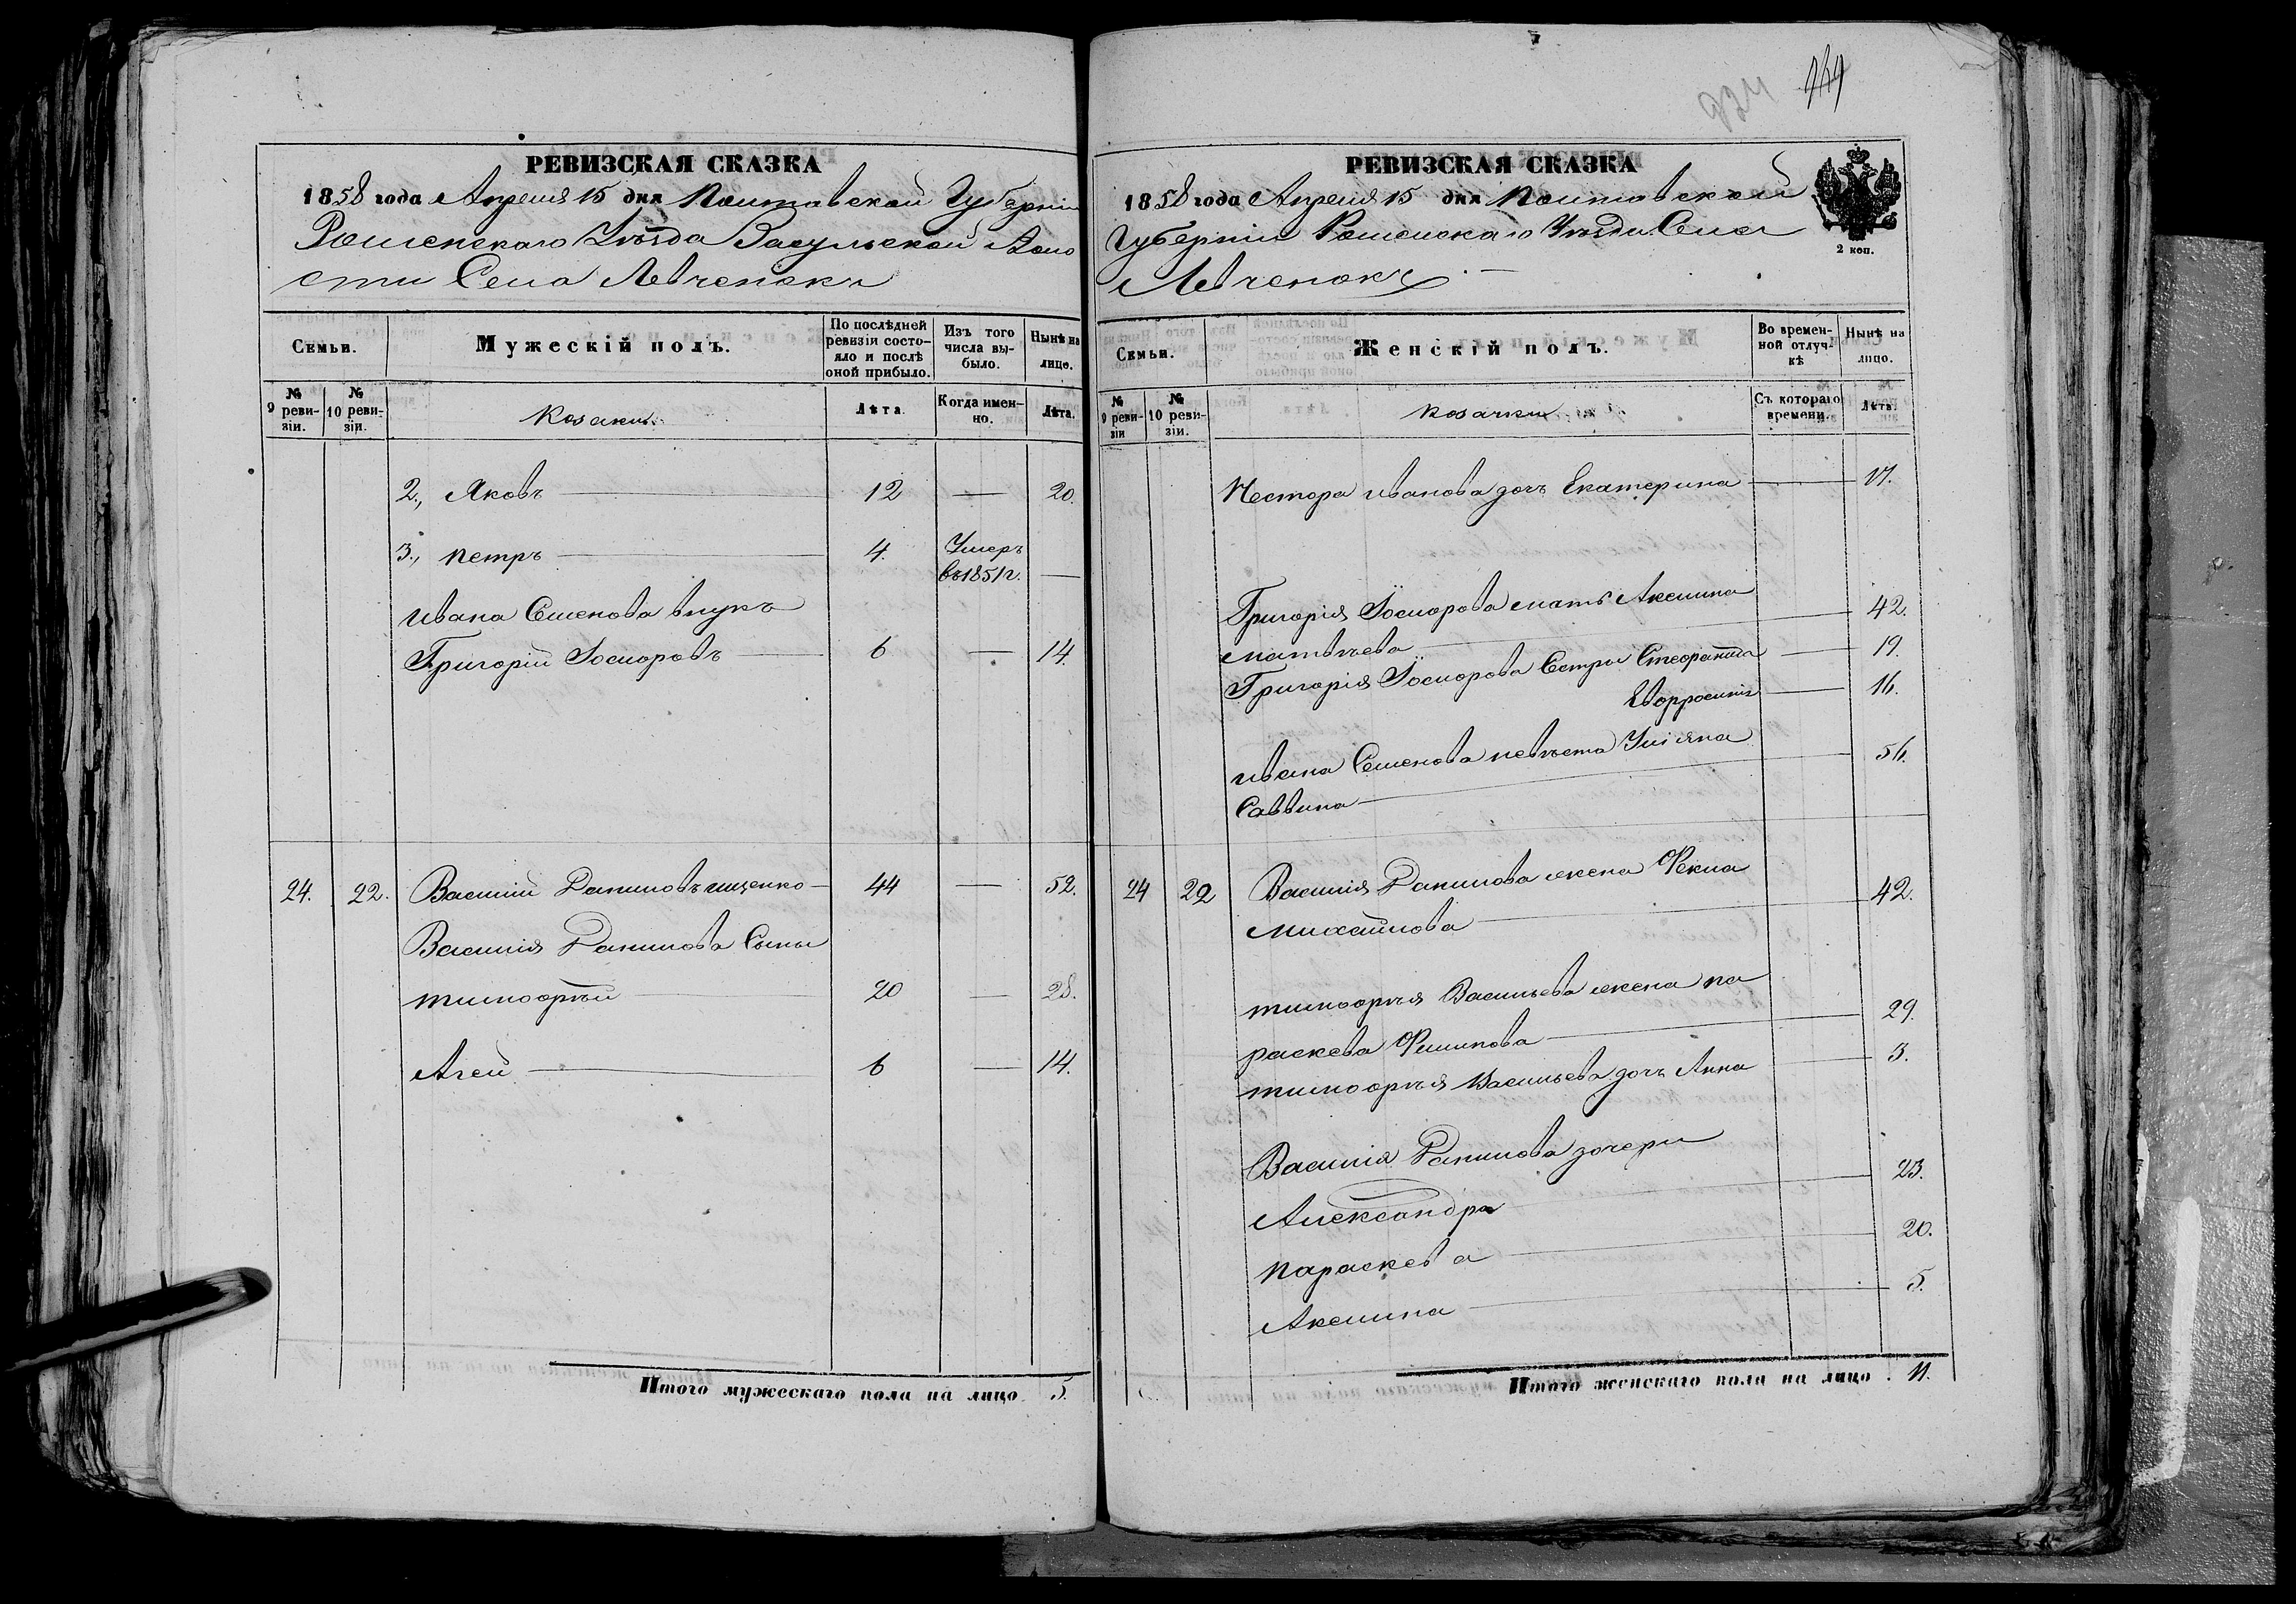 РЕВИЗСКАЯ СКАЗКА
1858 года Апреля 15 дня Полтавской Губерніи
Роменскаго Уѣзда Засульской Воло
сти Села Левченокъ
Семьи.
Мужескій полъ.
По послѣдней ревизіи состояло и послѣ оной прибыло.
Изъ того числа выбыло.
Нынѣ на лицо.
№ 9 ревизіи.
№ 10 ревизіи.
Козаки.
Лѣта.
Когда именно.
Лѣта.
2., Яковъ 12 — 20.
3., Петръ 4. Умеръ
въ 1851 г. —
Ивана Семенова внукъ
Григорій Іосифовъ 6 — 14.
24. 22. Василій Даниловъ Ищенко 44 — 52.
Василія Данилова Сыны
Тимофѣй 20 — 28.
Агей 6 — 14.
Итого мужескаго пола на лицо 5.
924
РЕВИЗСКАЯ СКАЗКА
1858 года Апреля 15 дня Полтавской
Губерніи Роменскаго Уѣзда Села
Левченокъ
2 коп.
Семьи.
Женскій полъ.
Во временной отлучкѣ
Нынѣ на лицо.
№ 9 ревизіи
№ 10 ревизіи.
Козачки
Съ котораго времени.
Лѣта.
Нестора Иванова дочь Екатерина — 17.
Григорія Іосифова мать Аксинія
Матвѣева — 42.
Григорія Іосифова Сестры Стефанида — 19.
Евфросинія — 16.
Ивана Семенова невѣста Уліяна
Саввина — 56.
24 22 Василія Данилова жена Фекла
Михайлова — 42.
Тимофѣя Васильева жена Па
раскева Филипова — 29.
Тимофѣя Васильева дочь Анна — 3.
Василія Данилова дочери
Александра — 23.
Параскева — 20.
Аксинія — 5.
Итого женскаго пола на лицо . 11.